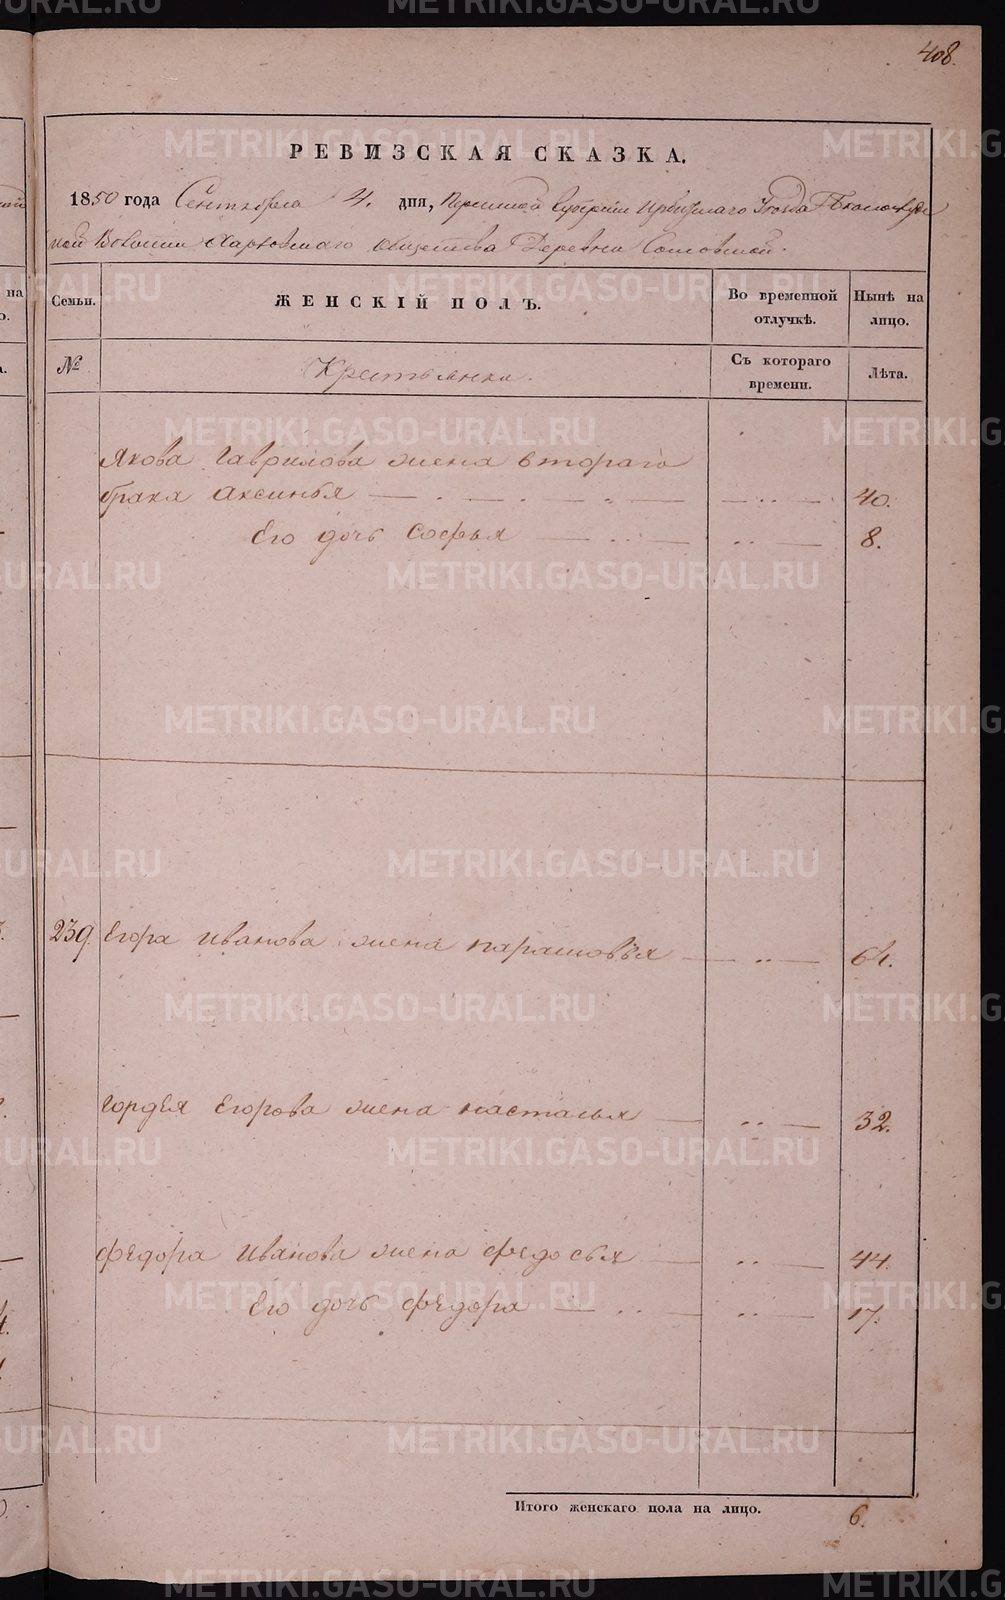 408.
РЕВИЗСКАЯ СКАЗКА.
1850 года Сентября 4. дня, Пермской Губернии Ирбитскаго Уезда
ской Волости Харловскаго общества Деревни
Семьи. ЖЕНСКІЙ ПОЛЪ. Во временной отлучкѣ. Нынѣ на лицо.
№ Крестьянка. Съ котораго времени. Лѣта.
Якова Гаврилова жена втораго
брака Аксинья 40.
Его дочь Софья 8.
239. Егора Иванова жена Парасковья 64.
Гордея Егорова жена Настасья 32.
Федора Иванова жена Федосья 44.
Его дочь Федора 17.
Итого женскаго пола на лицо. 6.
METRIKI.GASO-URAL.RU